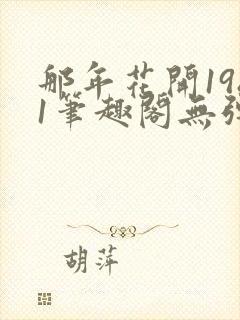 那年花開19
1筆趣閣無
胡萍